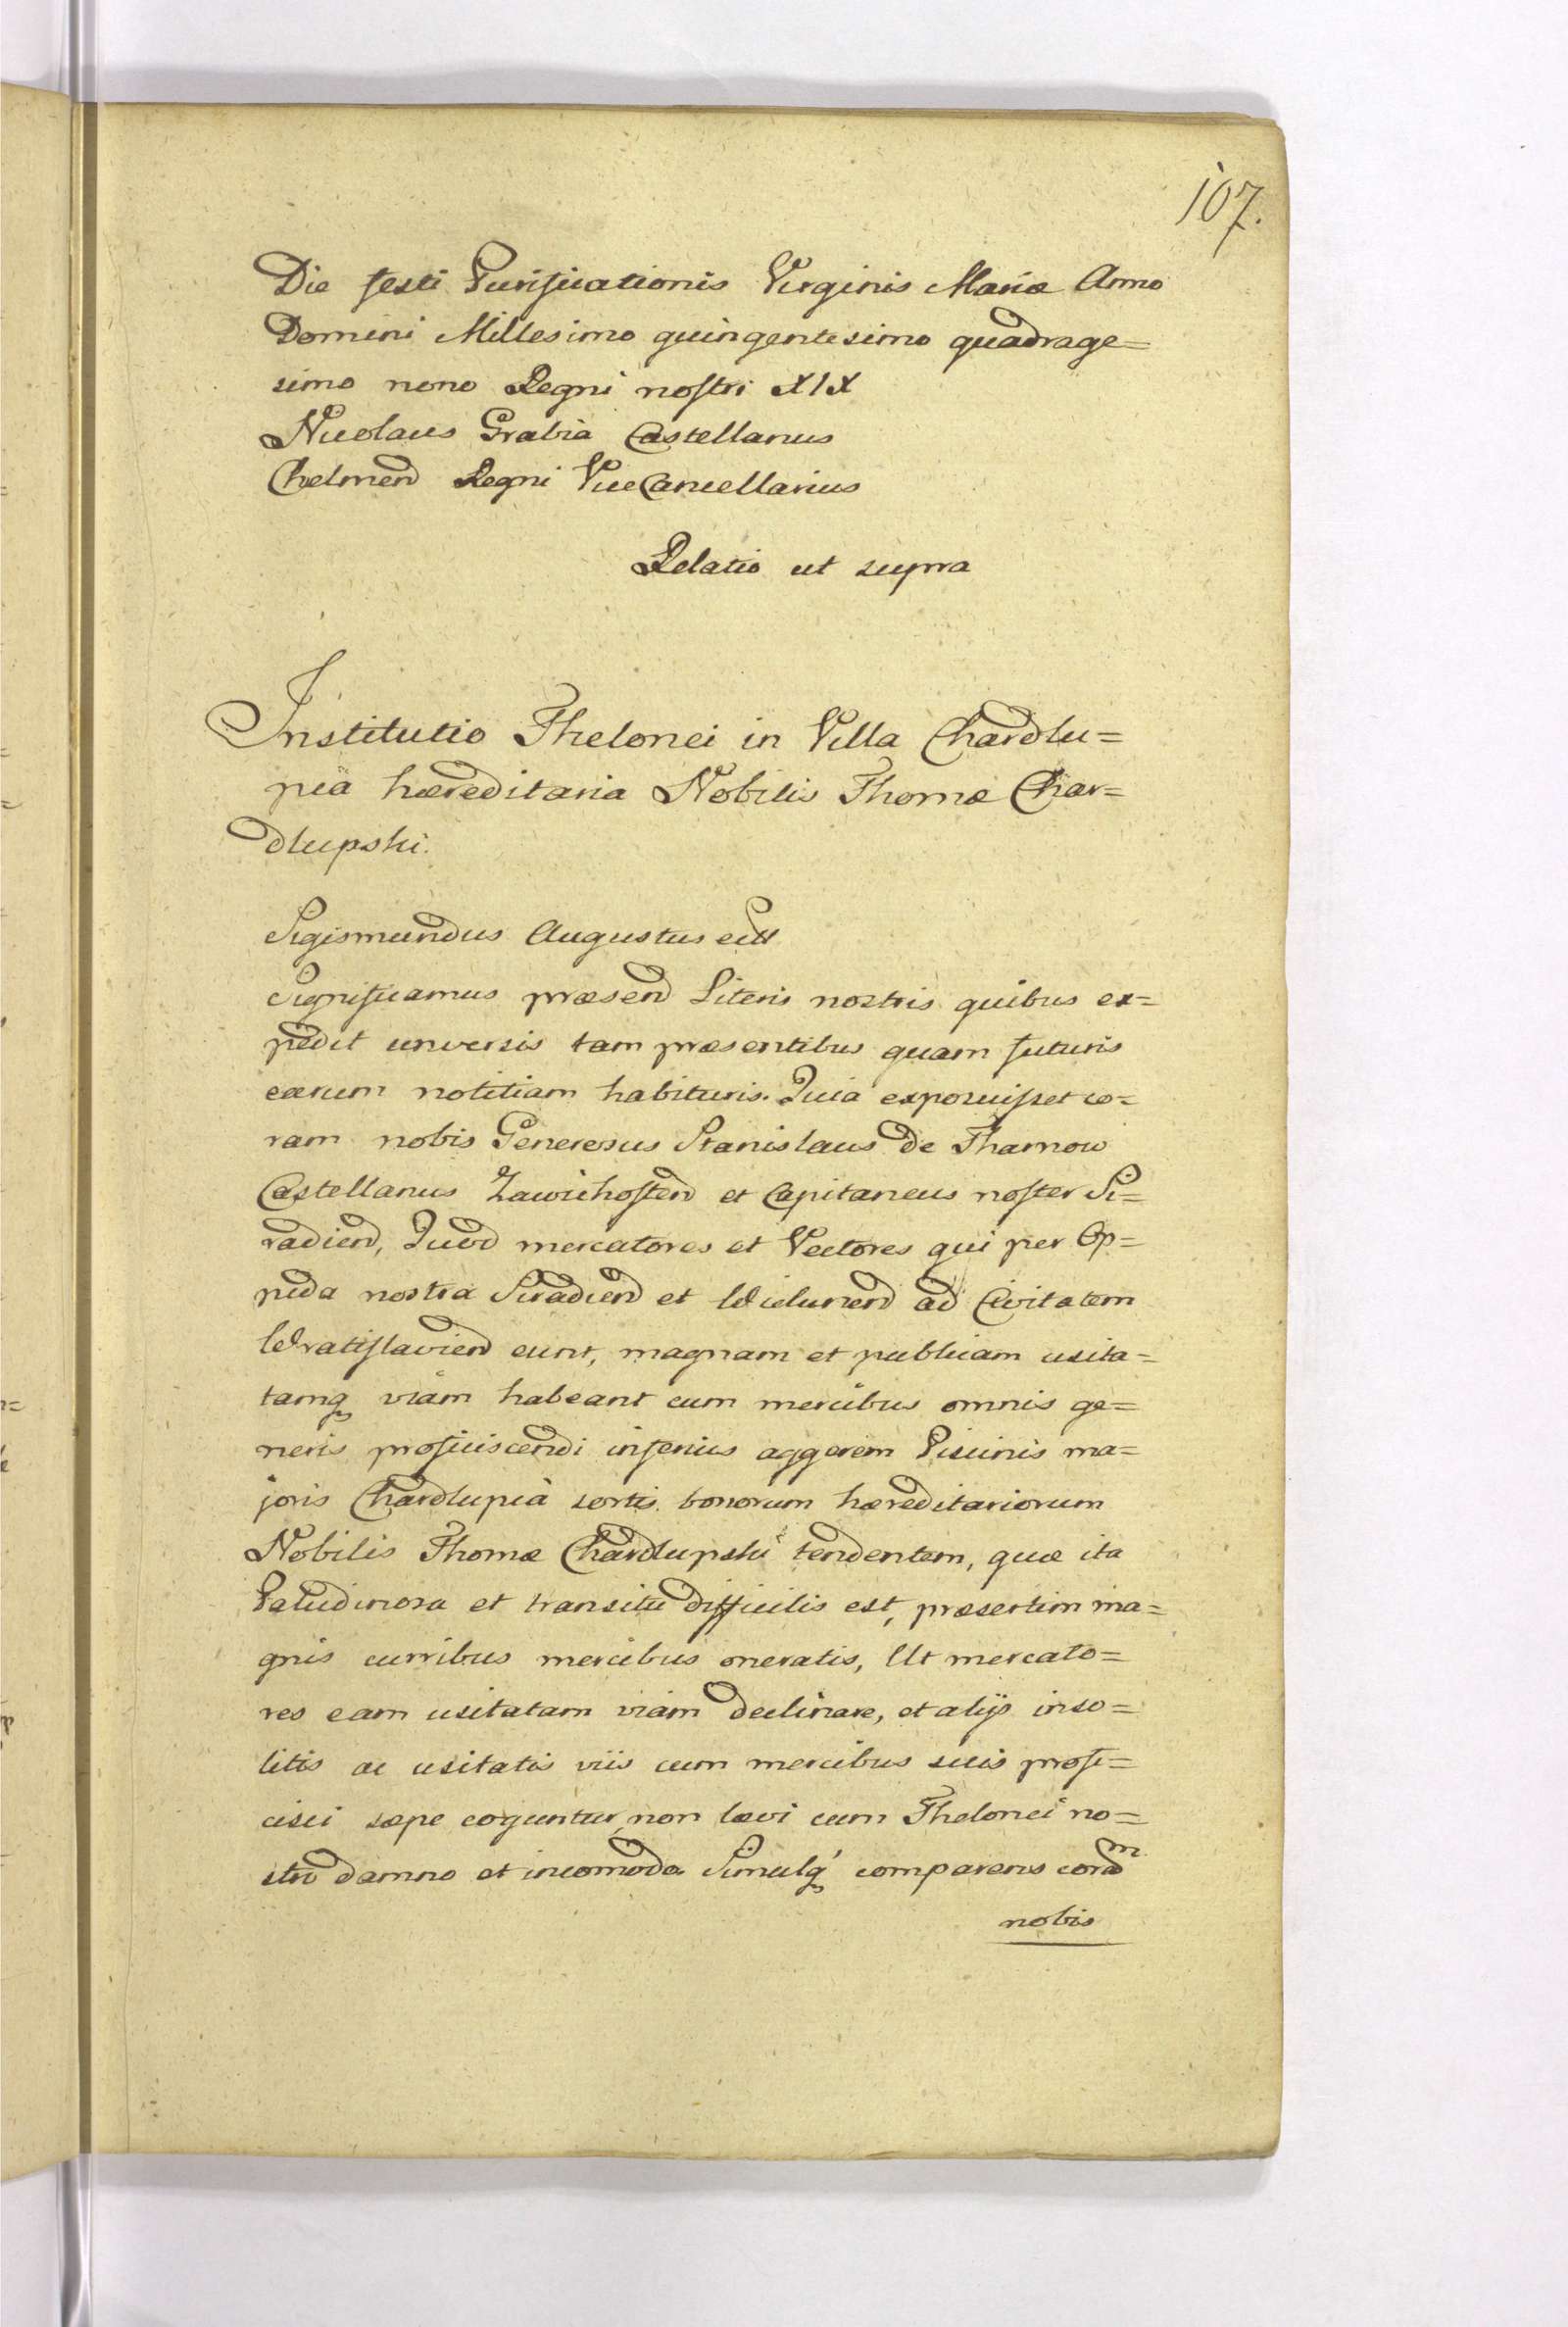 107.
Die festi Purificationis Virginis Mariæ Anno
Domini Millesimo quingentesimo quadrage=
simo nono Regni nostri XIX
Nicolaus Grabia Castellanus
Chelmen Regni ViceCancellarius
Relatio ut supra
Institutio Thelonei in Villa Chardlu=
pia hæreditaria Nobilis Thomæ Char=
dlupski.
Sigismundus Augustus ect
Significamus præsen Literis nostris quibus ex=
pedit universis tam præsentibus quam futuris
earum notitiam habituris. Quia exposuisset co=
ram nobis Generosus Stanislaus de Tharnow
Castellanus Zawichosten et Capitaneus noster Si=
radien, Quod mercatores et Vectores qui per Op=
pida nostra Siradien et Wielunen ad Civitatem
Wratislavien eunt, magnam et publicam usita=
tamq viam habeant cum mercibus omnis ge=
neris proficiscendi inferius aggerem Piscinis ma=
joris Chardlupia sortis bonorum hæreditariorum
Nobilis Thomæ Chardlupski tendentem, quæ ita
Paludinosa et transitu difficilis est, præsertim ma=
gnis curribus mercibus oneratis, Ut mercato=
res eam usitatam viam declinare, et alijs inso=
litis ac usitatis viis cum mercibus suis profi=
cisci sæpe coguntur, non lævi cum Thelonei no=
stri damno et incomodo Simulq comparens coram
nobis